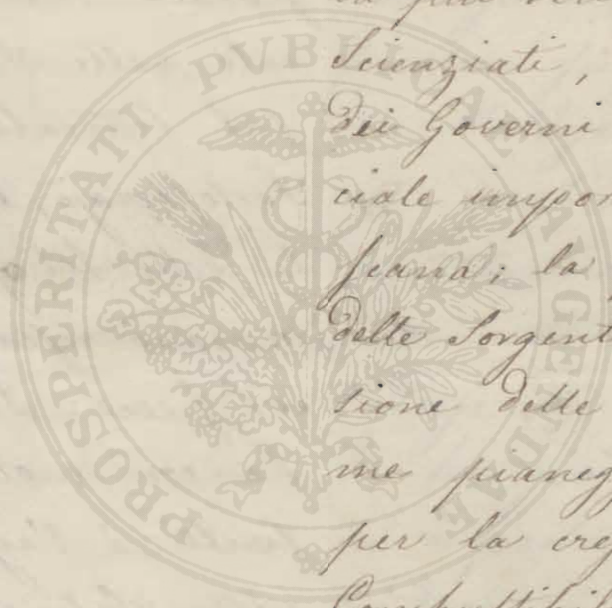 PROSPERITATI PVBLICAE AVGENDAE
Scienziati,
dei Governi
ciale impor
la
delle Sorgent
sione delle
me pianeg
per la